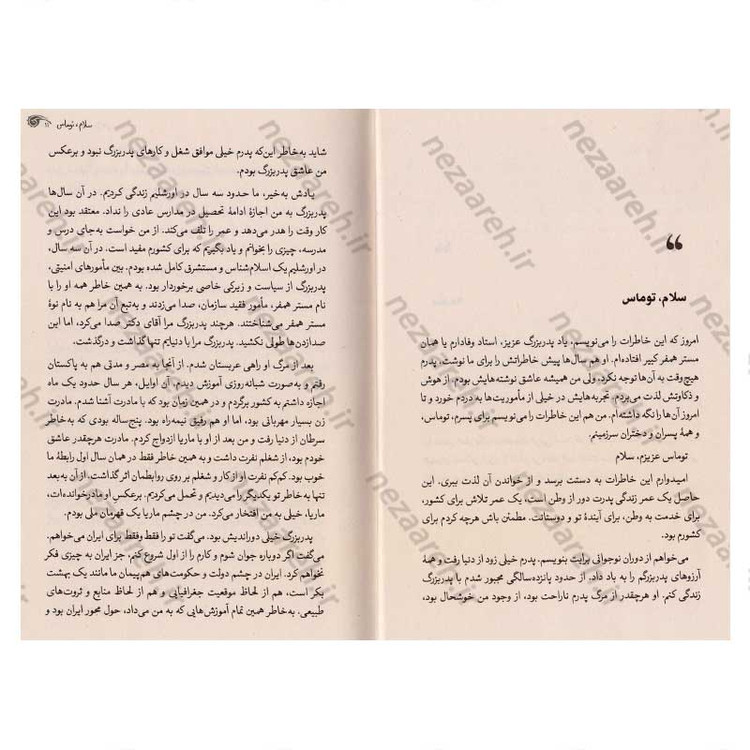 ❝
سلام، توماس
امروز که این خاطرات را می‌نویسم، یاد پدربزرگ عزیز، استاد وفادارم یا همان
مستر همفر کبیر افتاده‌ام. او هم سال‌ها پیش خاطراتش را برای ما نوشت. پدرم
هیچ‌وقت به آن‌ها توجه نکرد، ولی من همیشه عاشق نوشته‌هایش بودم. از هوش
و ذکاوتش لذت می‌بردم. تجربه‌هایش در خیلی از مأموریت‌ها به دردم خورد و تا
امروز آن‌ها را نگه داشته‌ام. من هم این خاطرات را می‌نویسم برای پسرم، توماس،
و همهٔ پسران و دختران سرزمینم.
توماس عزیزم، سلام
امیدوارم این خاطرات به دستت برسد و از خواندن آن لذت ببری. این
حاصل یک عمر زندگی پدرت دور از وطن است، یک عمر تلاش برای کشور،
برای خدمت به وطن، برای آیندهٔ تو و دوستانت. مطمئن باش هرچه کردم برای
کشورم بود.
می‌خواهم از دوران نوجوانی برایت بنویسم. پدرم خیلی زود از دنیا رفت و همهٔ
آرزوهای پدربزرگم را به باد داد. از حدود پانزده‌سالگی مجبور شدم با پدربزرگ
زندگی کنم. او هرچقدر از مرگ پدرم ناراحت بود، از وجود من خوشحال بود،
سلام، توماس ۱۱
شاید به‌خاطر این‌که پدرم خیلی موافق شغل و کارهای پدربزرگ نبود و برعکس
من عاشق پدربزرگ بودم.
یادش به‌خیر، ما حدود سه سال در اورشلیم زندگی کردیم. در آن سال‌ها
پدربزرگ به من اجازهٔ ادامهٔ تحصیل در مدارس عادی را نداد. معتقد بود این
کار وقت را هدر می‌دهد و عمر را تلف می‌کند. از من خواست به‌جای درس و
مدرسه، چیزی را بخوانم و یاد بگیرم که برای کشورم مفید است. در آن سه سال،
در اورشلیم یک اسلام‌شناس و مستشرق کامل شده بودم. بین مأمورهای امنیتی،
پدربزرگ از سیاست و زیرکی خاصی برخوردار بود. به همین خاطر همه او را با
نام مستر همفر، مأمور فقید سازمان، صدا می‌زدند و به‌تبع آن مرا هم به نام نوهٔ
مستر همفر می‌شناختند. هرچند پدربزرگ مرا آقای دکتر صدا می‌کرد، اما این
صدازدن‌ها طولی نکشید. پدربزرگ مرا با دنیایم تنها گذاشت و درگذشت.
بعد از مرگ او راهی عربستان شدم. از آنجا به مصر و مدتی هم به پاکستان
رفتم و به‌صورت شبانه‌روزی آموزش دیدم. آن اوایل، هر سال حدود یک ماه
اجازه داشتم به کشور برگردم و در همین زمان بود که با مادرت آشنا شدم. مادرت
زن بسیار مهربانی بود، اما او هم رفیق نیمه‌راه بود. پنج‌ساله بودی که به‌خاطر
سرطان از دنیا رفت و من بعد از او با ماریا ازدواج کردم. مادرت هرچقدر عاشق
خودم بود، از شغلم نفرت داشت و به خاطر همین فقط در همان سال اول رابطهٔ ما
خوب بود. کم‌کم نفرت او از کار و شغلم بر روی روابطمان اثر گذاشت. از آن به‌بعد
تنها به‌خاطر تو یکدیگر را می‌دیدیم و تحمل می‌کردیم. برعکسِ او مادرخوانده‌ات،
ماریا، خیلی به من افتخار می‌کرد. من در چشم ماریا یک قهرمان ملی بودم.
پدربزرگ خیلی دوراندیش بود. می‌گفت تو را فقط‌وفقط برای ایران می‌خواهم.
می‌گفت اگر دوباره جوان شوم و کارم را از اول شروع کنم، جز ایران به چیزی فکر
نخواهم کرد. ایران در چشم دولت و حکومت‌های هم‌پیمان ما مانند یک بهشت
بکر است، هم از لحاظ موقعیت جغرافیایی و هم از لحاظ منابع و ثروت‌های
طبیعی. به‌خاطر همین تمام آموزش‌هایی که به من می‌داد، حول محور ایران بود و
nezaareh.ir